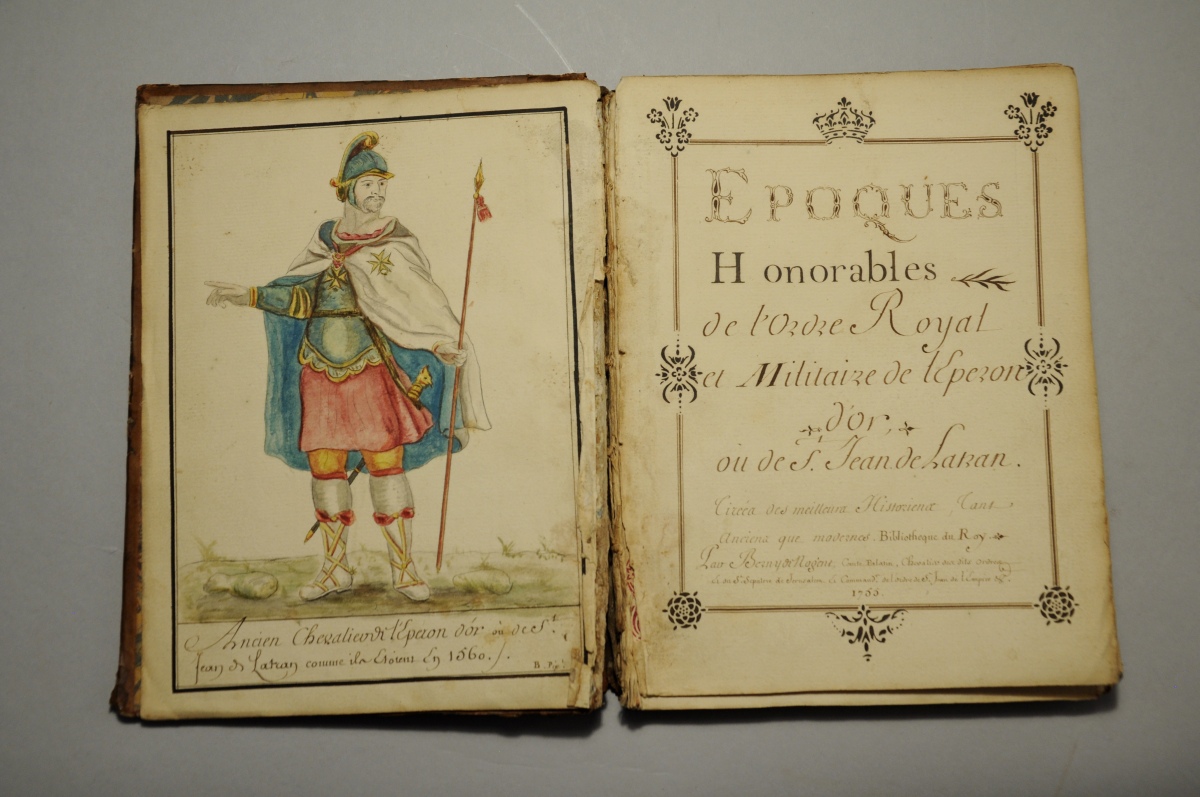 Ancien Chevalier de l'Eperon d'or ou de St.
Jean de Latran comme ils Etoient En 1560.
EPOQUES
Honorables
de l'Ordre Royal
et Militaire de l'Eperon
d'or,
ou de St. Jean de Latran.
Tirées des meilleurs Historiens Tant
Anciens que modernes. Bibliotheque du Roy
Par Beiny de Nogent, Comte Palatin, Chevalier des dits Ordres
de St. Jean de l'Eperon